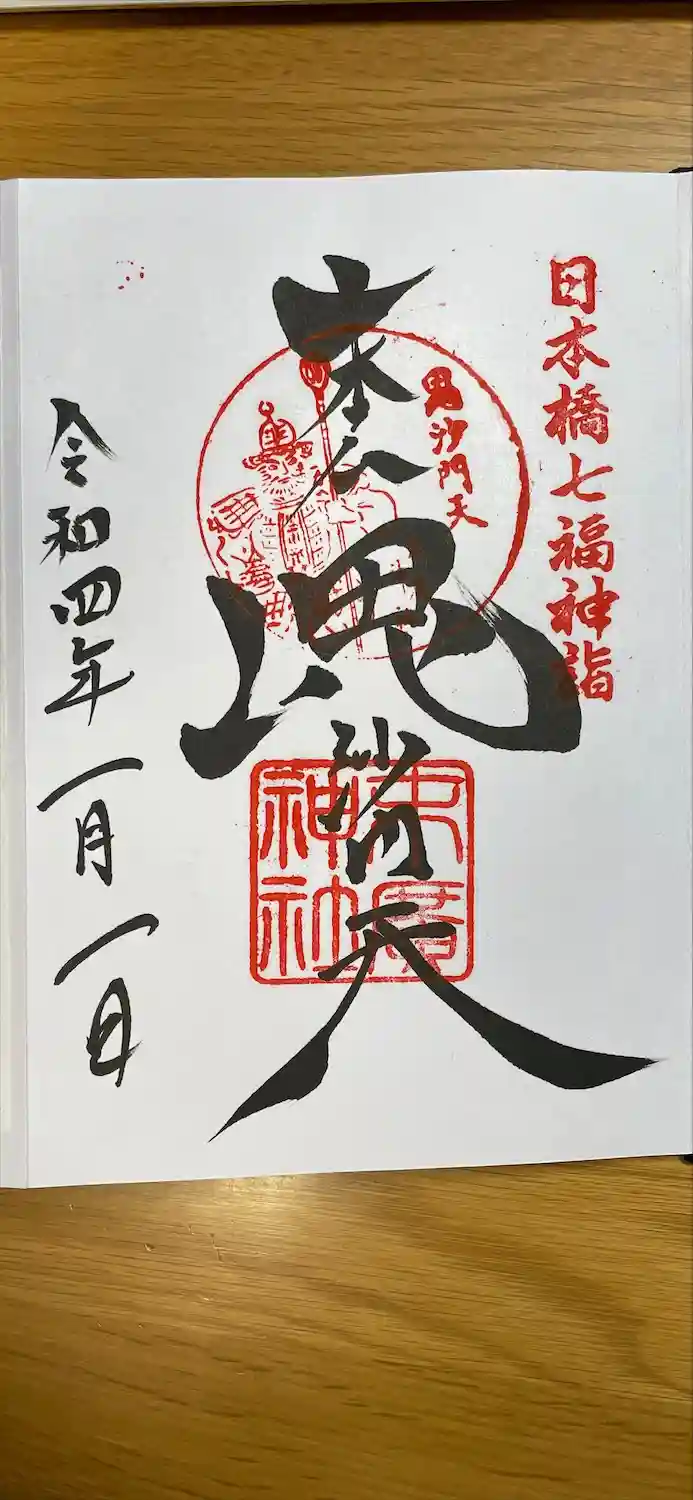 日本橋七福神詣
毘沙門天
毘沙門天
末廣
神社
令和四年一月一日